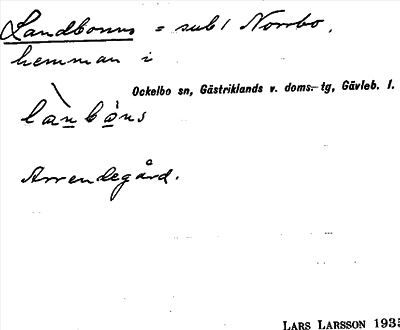 Landbonus = sub/ Norrbo,
hemman i
Ockelbo sn, Gästriklands v. doms.-tg, Gävleb. l.
lànbòns
Arrendegård.
LARS LARSSON 1935